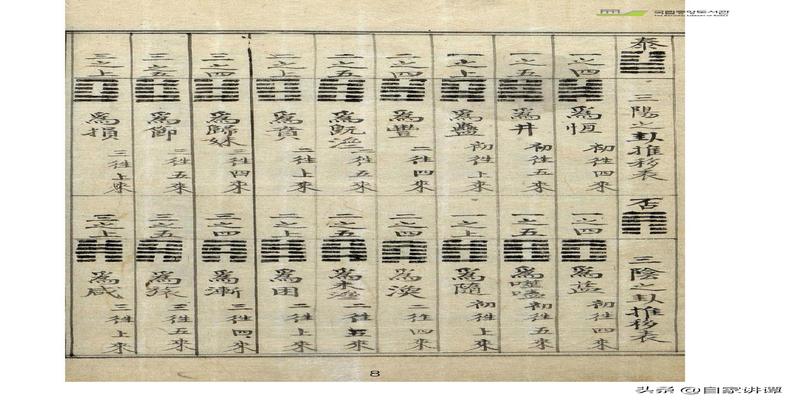 국립중앙도서관
THE NATIONAL LIBRARY OF KOREA
泰 三陽之卦推移表 否 三陰之卦推移表
一之四 爲恒 初徃四來
一之四 爲益 初徃四來
一之五 爲井 初徃五來
一之五 爲噬嗑 初徃五來
一之上 爲蠱 初徃上來
一之上 爲隨 初徃上來
二之四 爲豐 二徃四來
二之四 爲渙 二徃四來
二之五 爲旣濟 二徃五來
二之五 爲未濟 二徃五來
二之上 爲賁 二徃上來
二之上 爲困 二徃上來
三之四 爲歸妹 三徃四來
三之四 爲漸 三徃四來
三之五 爲節 三徃五來
三之五 爲旅 三徃五來
三之上 爲損 三徃上來
三之上 爲咸 三徃上來
8
头条 @自家讲谭